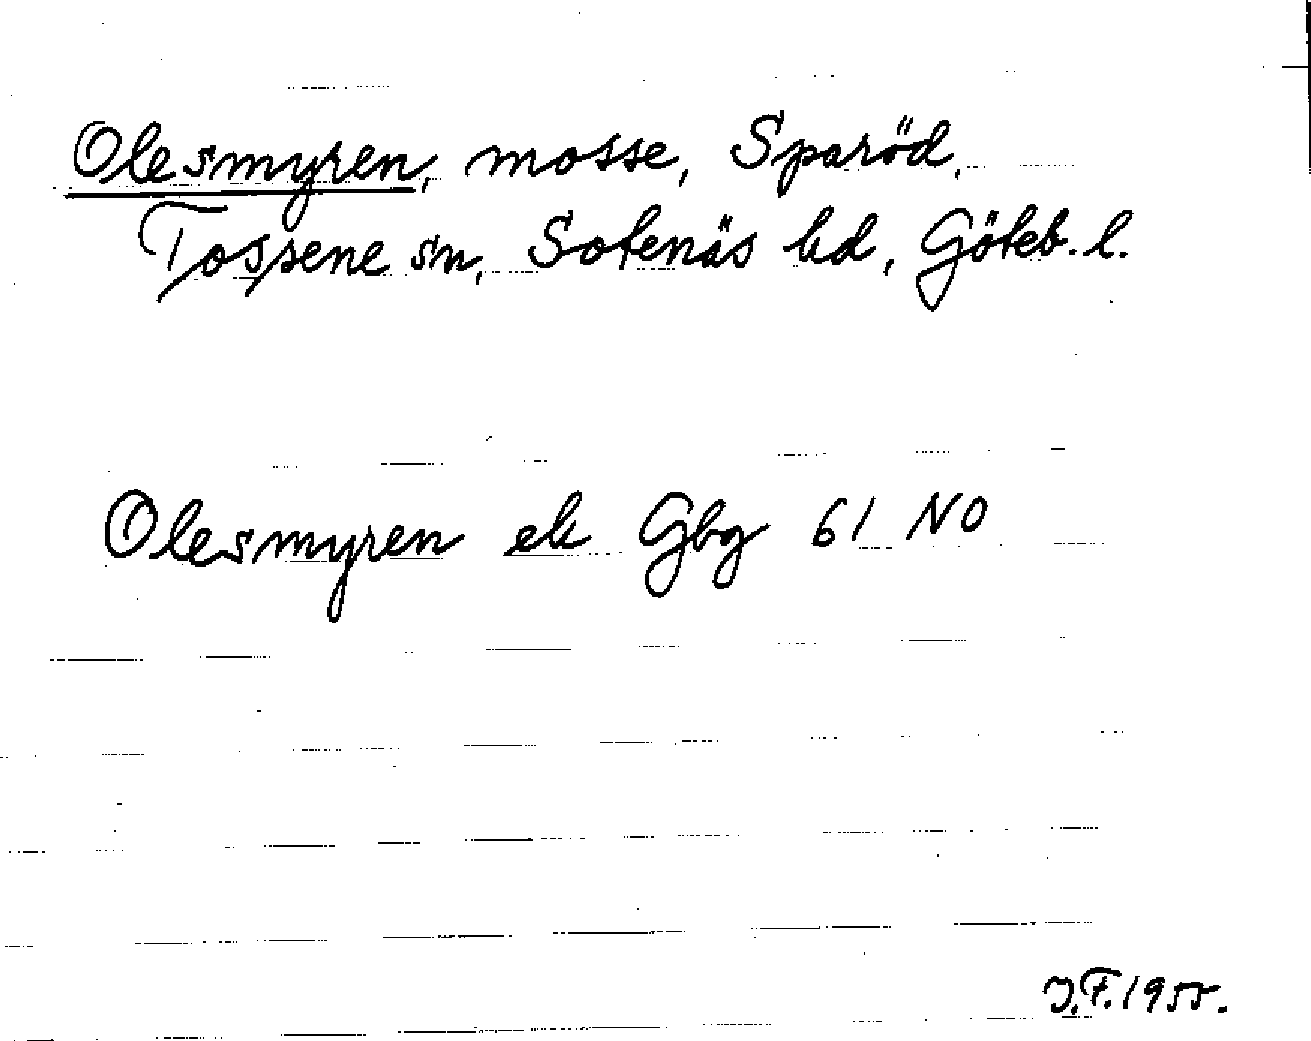 Olesmyren, mosse, Sparöd,
Tossene sn, Sotenäs hd, Göteb. l.
Olesmyren ek Gbg 61 NO
J.F. 1955.